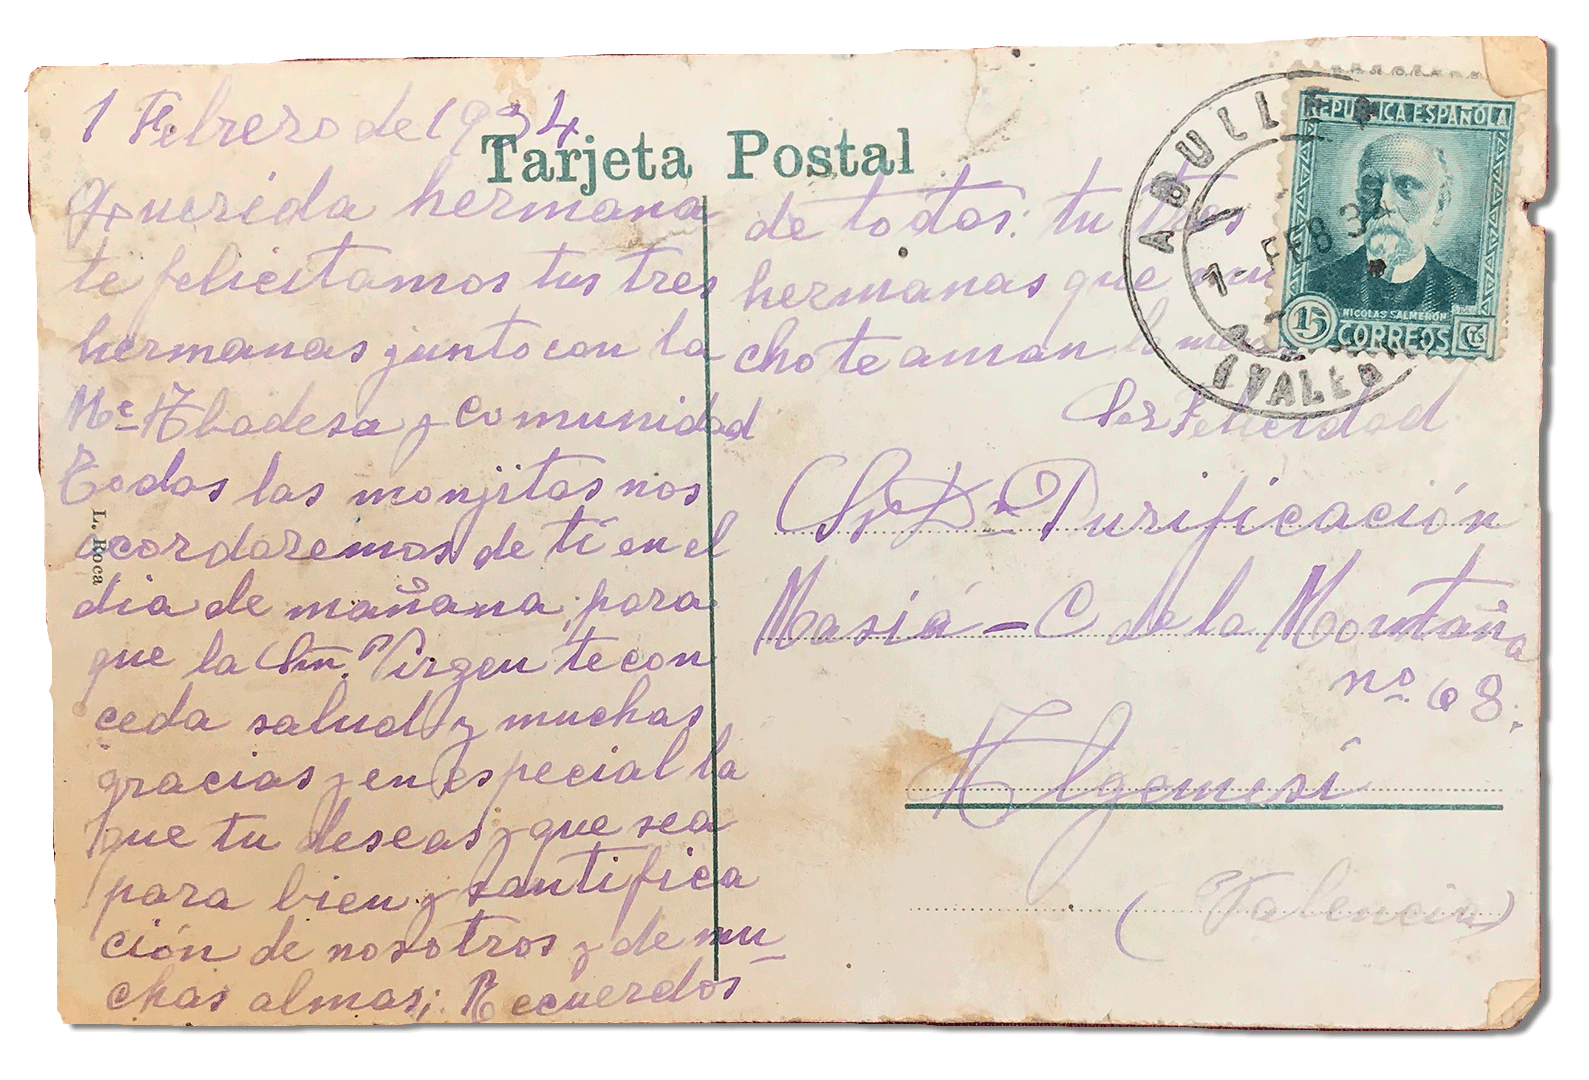 1 Febrero de 1934
Tarjeta Postal
Querida hermana
te felicitamos tus tres
hermanas junto con la
Me Abadesa y comunidad
Todas las monjitas nos
acordaremos de tí en el
dia de mañana, para
que la Sm. Virgen te con
ceda salud y muchas
gracias y en especial la
que tu deseas y que sea
para bien y santifica
ción de nosotros y de mu-
chas almas; Recuerdos
de todos: tu tres
hermanas que mu
cho te aman
Sor Felicidad
L. Roca
REPUBLICA ESPAÑOLA
NICOLAS SALMERON
15 CORREOS CTS
1 - FEB 34
Sra Da Purificación
Masiá - C de la Montaña
nº 68.
Algemesí
(Valencia)